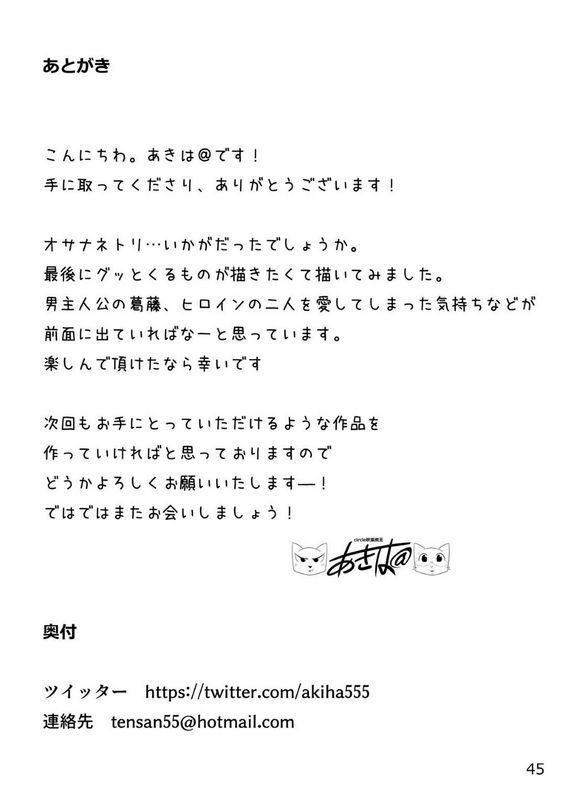 あとがき
こんにちわ。あきは@です!
手に取ってくださり、ありがとうございます!
オサナネトリ…いかがだったでしょうか。
最後にグッとくるものが描きたくて描いてみました。
男主人公の葛藤、ヒロインの二人を愛してしまった気持ちなどが
前面に出ていればなーと思っています。
楽しんで頂けたなら幸いです
次回もお手にとっていただけるような作品を
作っていければと思っておりますので
どうかよろしくお願いいたします―!
ではではまたお会いしましょう!
circle
あきは@
奥付
ツイッター https://twitter.com/akiha555
連絡先 tensan55@hotmail.com
45